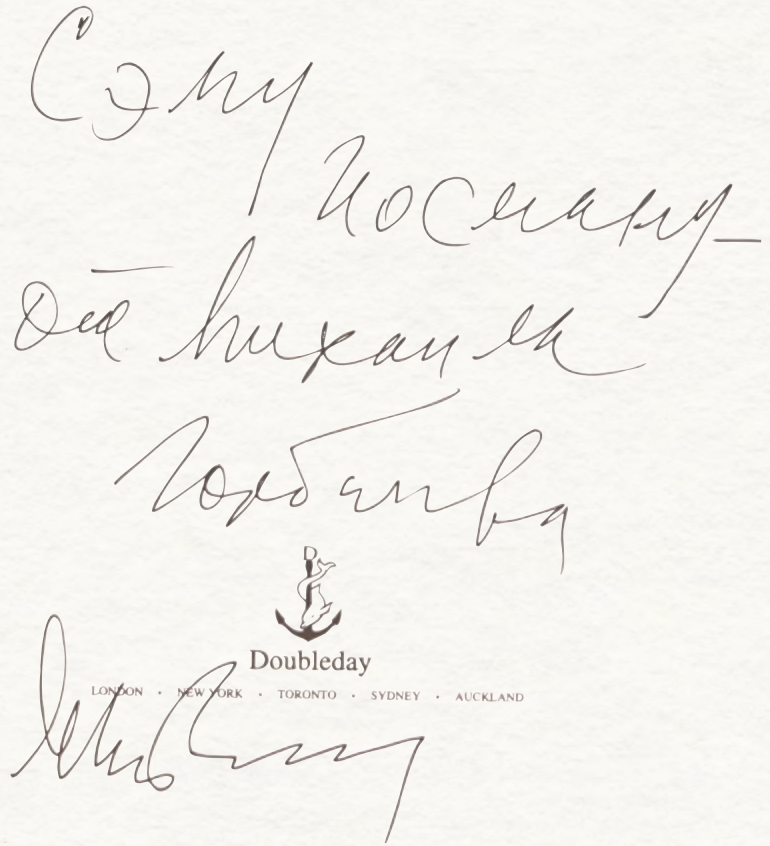 Сэму
Посману –
от Михаила
Горбачева
Doubleday
LONDON · NEW YORK · TORONTO · SYDNEY · AUCKLAND